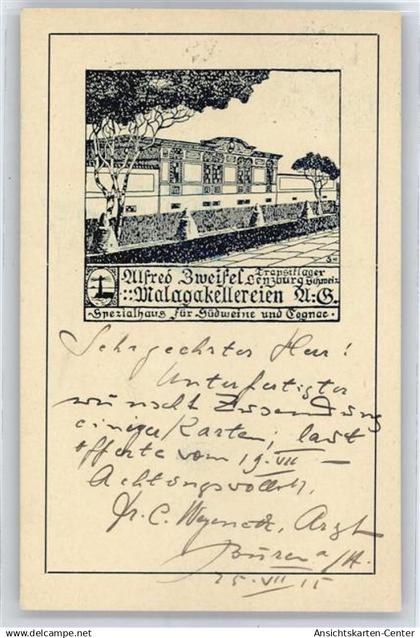 Alfred Zweifel
Transitlager
Lenzburg Schweiz
Malagakellereien A:G.
Spezialhaus für Südweine und Cognac
Sehr geehrter Herr!
Unterfertigter
wünscht Zusendung
einiger Karten, laut
Offerte vom 19. VII –
Achtungsvollst,
Dr. C. Arzt
Büren a/A.
25. VII 15
AK Ansichtskarten-Center